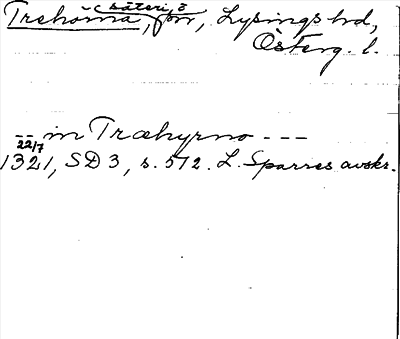 (säteri,)
Trehörna, sn, Lysings hd,
Österg. l.
-- in Træhyrno ---
22/7
1321, SD 3, s. 572. L. Sparres avskr.